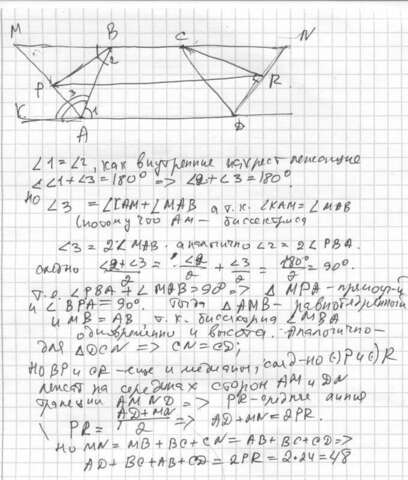 M B C N
2
P R
3
K 1
A D
∠1=∠2, как внутренние накрест лежащие
∠1+∠3=180° => ∠2+∠3=180°.
но ∠3 = ∠KAM+∠MAB а т.к. ∠KAM=∠MAB
(потому что AM – биссектриса
∠3=2∠MAB. аналогично ∠2=2∠PBA.
(∠2+∠3)/2 = ∠2/2 + ∠3/2 = 180°/2 = 90°.
т.е. ∠PBA+∠MAB=90° =>
и ∠BPA=90°. Тогда ΔAMB – равнобедренный
и MB=AB т.к. биссектриса ∠MBA
одновременно и высота. Аналогично
для ΔDCN => CN=CD;
Но BP и CR – еще и медианы, след-но (·)P и (·)R
лежат на серединах сторон AM и DN
трапеции AMND => PR – средняя линия
PR = (AD+MN)/2 => AD+MN=2PR.
Но MN=MB+BC+CN=AB+BC+CD=>
AD+BC+AB+CD=2PR=2·24=48